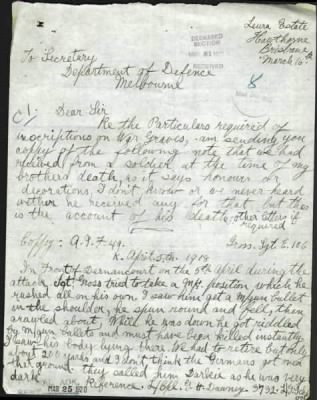 Leura Estate
Hawthorne
Brisbane
March 16th
To Secretary
Department of Defence
Melbourne
DECEASED
SECTION
RECEIVED
8
Dear Sir
Re the Particulars required of
inscriptions on War Graves, am sending you
copy of the following note that we had
received from a soldier at the time of my
brothers death, as it says honours or
decorations, I don't know or we never heard
wether he received any for that, but this
is the account of his death, other letters if
required
Copy:- A.I.F. 49.
Goss. Sgt. E. 106
K. April 5th 1918
In Front of Dernancourt on the 5th April during the
attack, Sgt. Goss tried to take a M.G. position, which he
rushed all on his own. I saw him get a M/gun bullet
in the shoulder, he spun round and fell, then
crawled about, While he was down he got riddled
by M/gun bullets and must have been killed instantly
I saw his body lying there. We had to retire but only
about 200 yards and I don't think the Germans got
other ground they called him Darkie as he was very
dark.
Reference.
MAR 25 1920